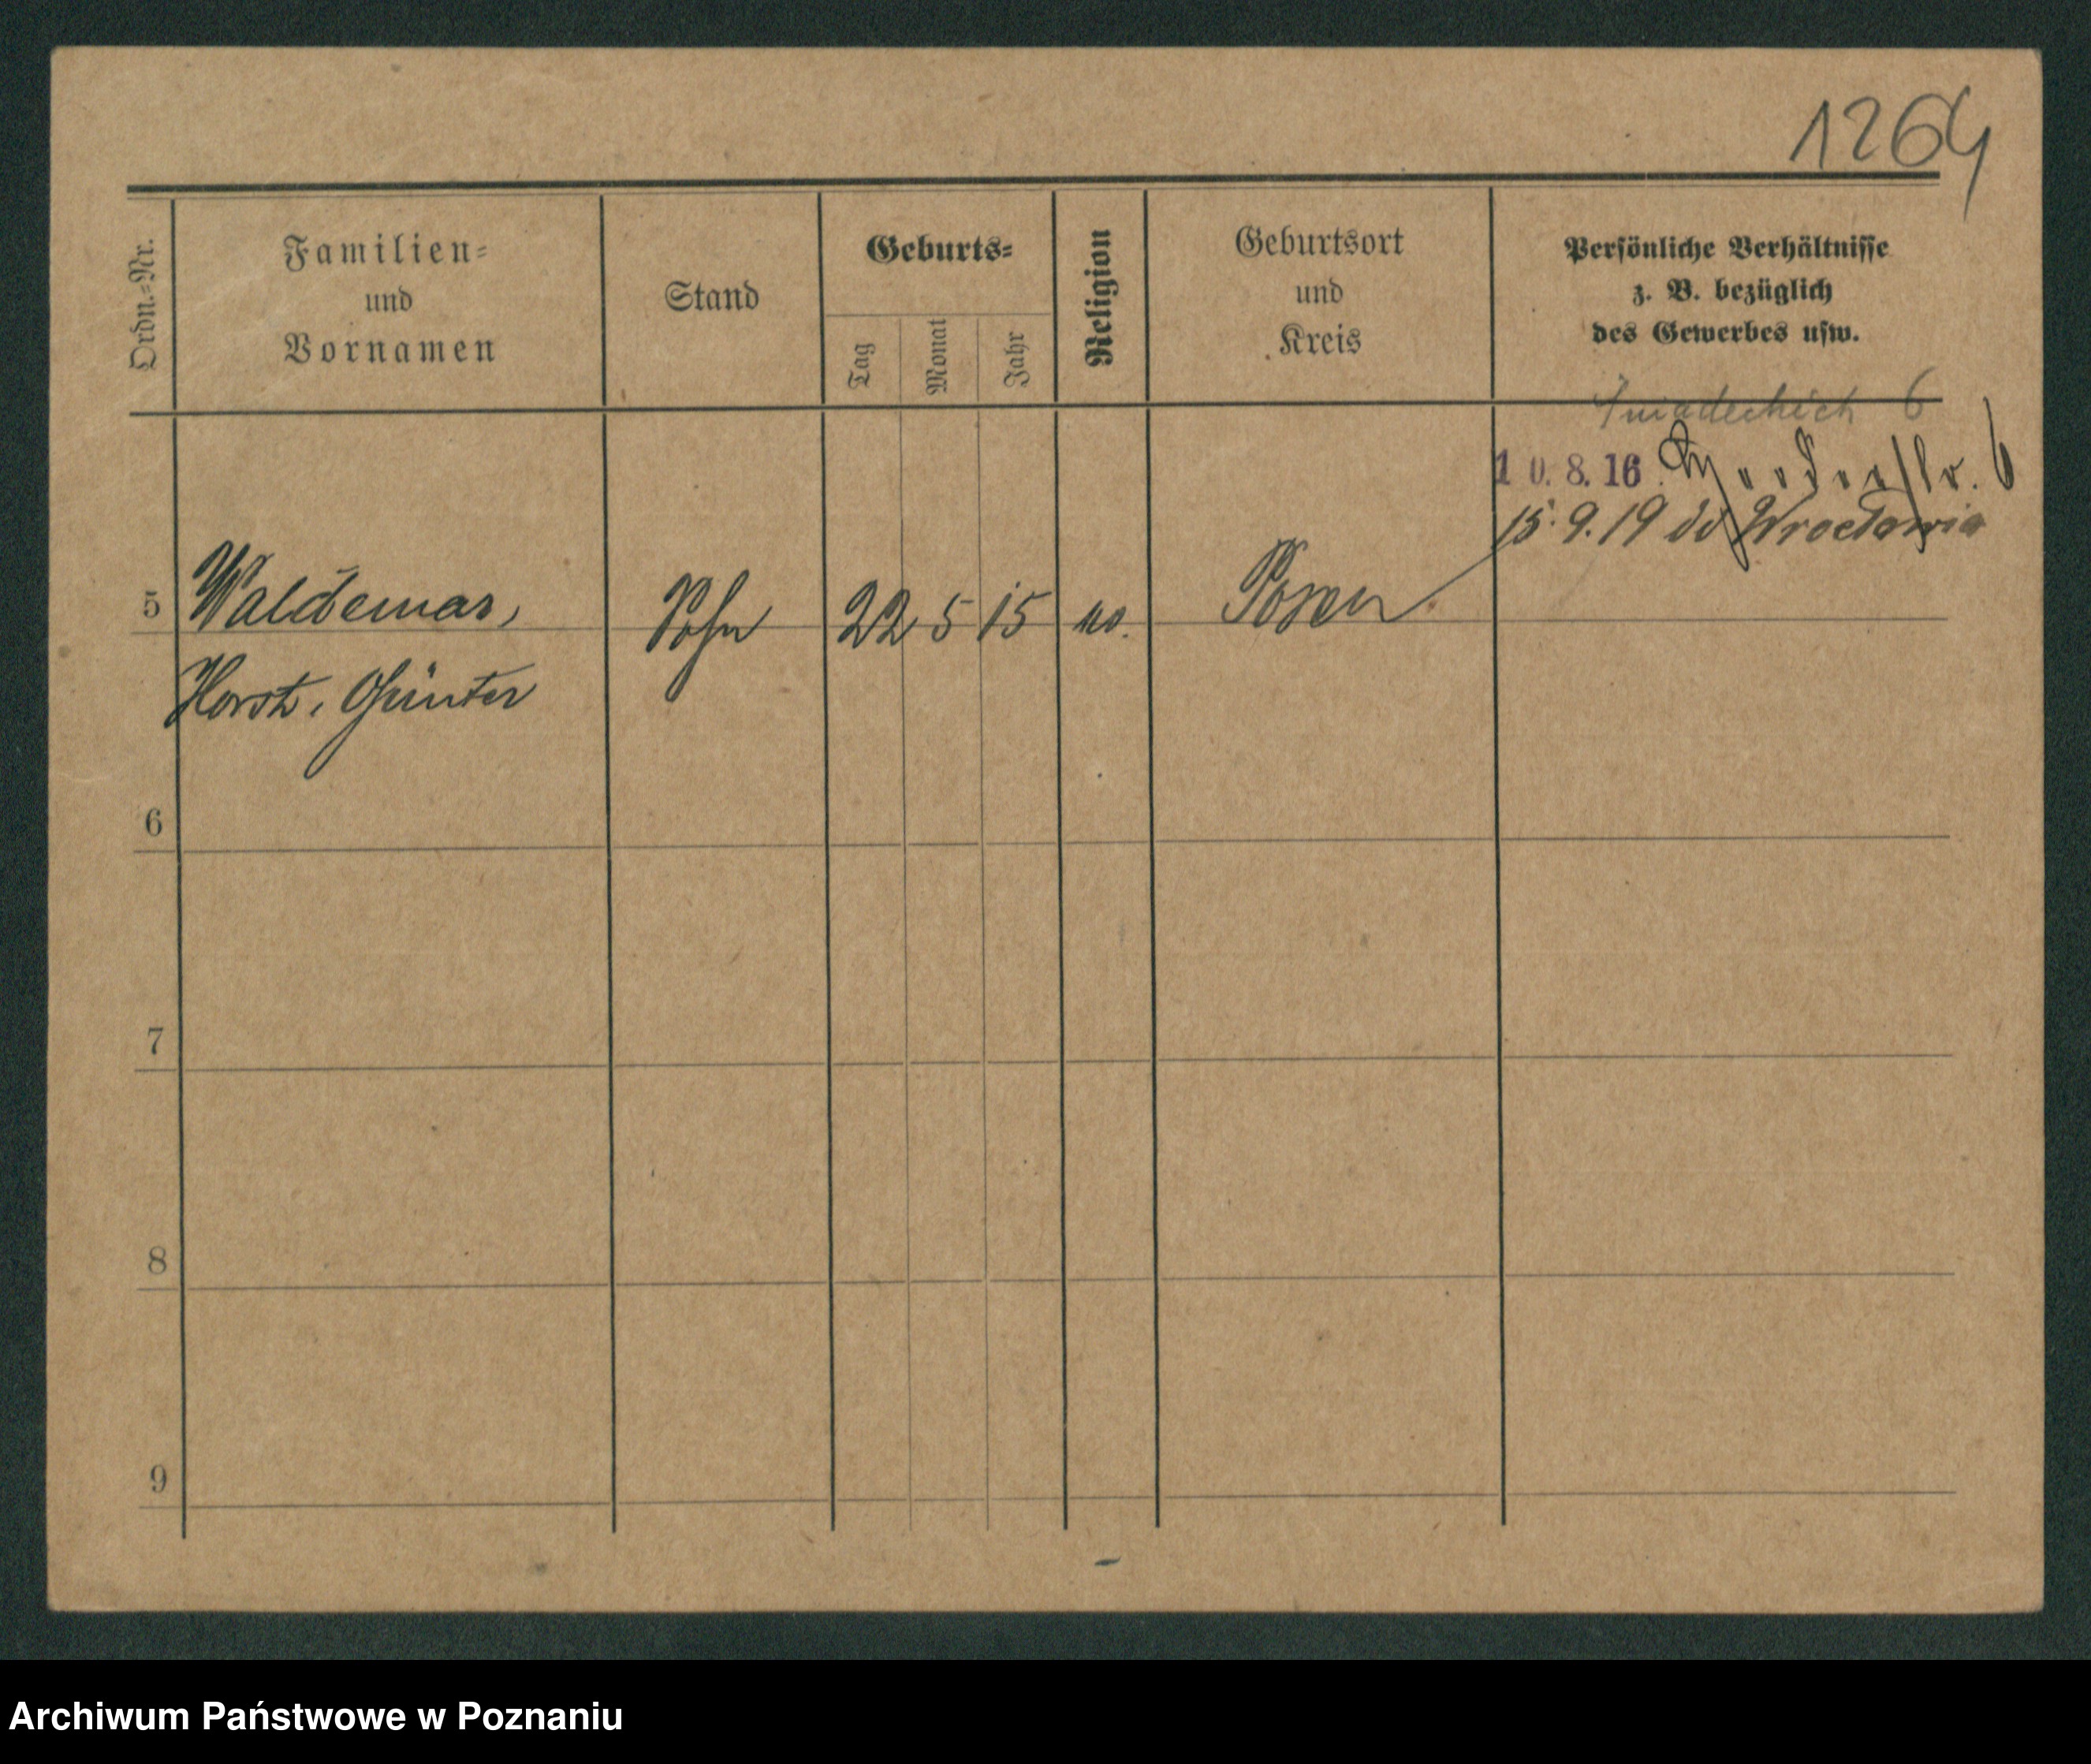 1264
Ordn.=Nr.
Familien=
und
Vornamen
Stand
Geburts=
Tag
Monat
Jahr
Religion
Geburtsort
und
Kreis
Persönliche Verhältnisse
z. B. bezüglich
des Gewerbes usw.
6
10.8.16. 6
15.9.19 do Wrocławia
5 Waldemar, Sohn 22 5 15 Posen
Horst, Günter
6
7
8
9
Archiwum Państwowe w Poznaniu